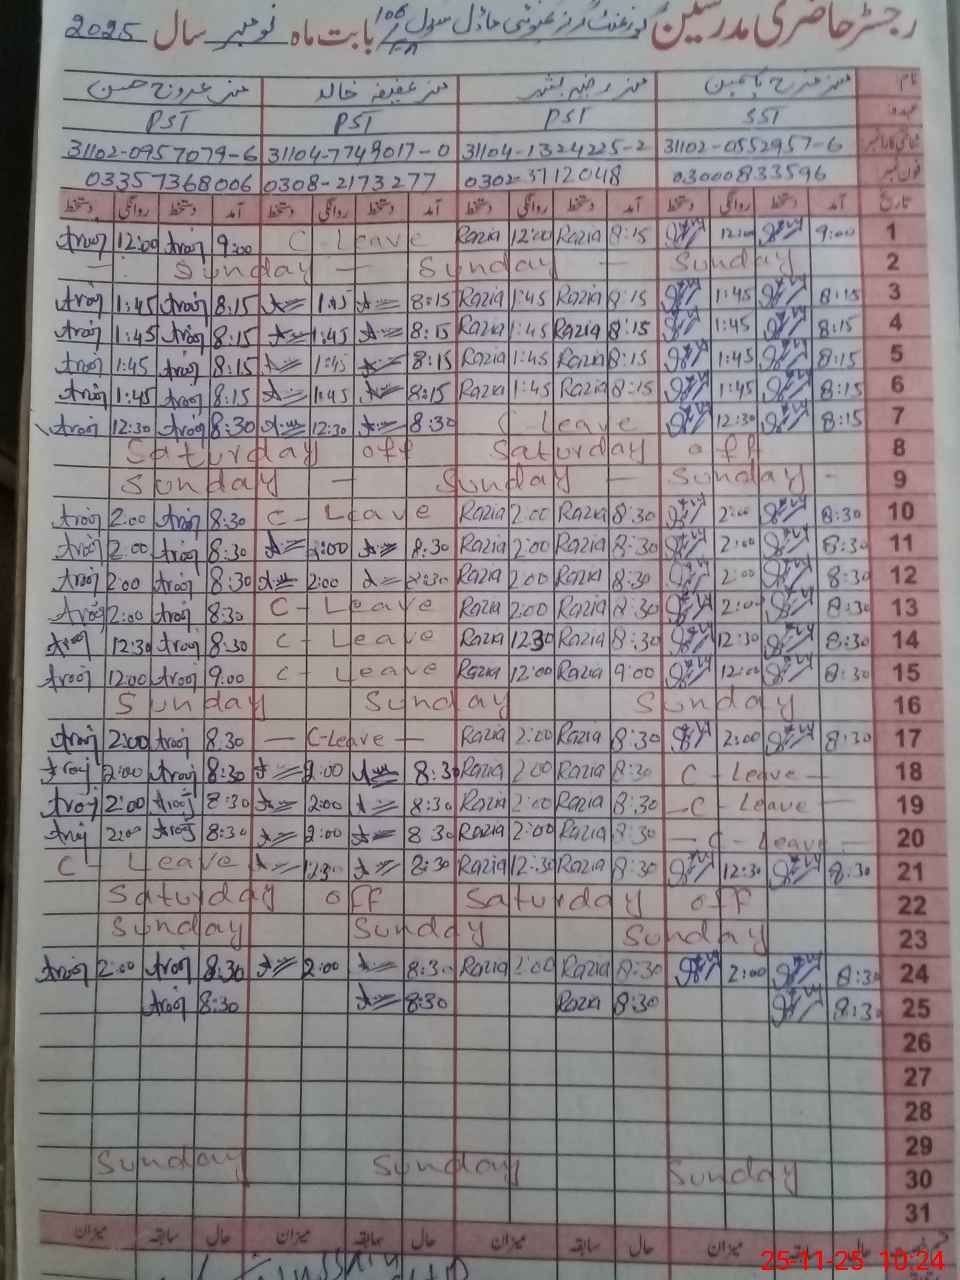 رجسٹر حاضری مدرسین گورنمنٹ گرلز کمیونٹی ماڈل سکول 106 بابت ماہ نومبر سال 2025
نام مسز یاسمین مسز رضیہ بشیر مسز عفیفہ خالد مسز عروج حسن
عہدہ SST PST PST PST
شناختی کارڈ نمبر 31102-0552957-6 31104-1324225-2 31104-7749017-0 31102-0957079-6
فون نمبر 03000833596 0302-3712048 0308-2173277 03357368006
تاریخ آمد دستخط روانگی دستخط آمد دستخط روانگی دستخط آمد دستخط روانگی دستخط آمد دستخط روانگی دستخط
Arooj 12:00 Arooj 9:00 C-Leave Razia 12:00 Razia 8:15 12:00 9:00 1
Sunday — Sunday — Sunday 2
Arooj 1:45 Arooj 8:15 1:45 8:15 Razia 1:45 Razia 8:15 1:45 8:15 3
Arooj 1:45 Arooj 8:15 1:45 8:15 Razia 1:45 Razia 8:15 1:45 8:15 4
Arooj 1:45 Arooj 8:15 1:45 8:15 Razia 1:45 Razia 8:15 1:45 8:15 5
Arooj 1:45 Arooj 8:15 1:45 8:15 Razia 1:45 Razia 8:15 1:45 8:15 6
Arooj 12:30 Arooj 8:30 12:30 8:30 C Leave 12:30 8:15 7
Saturday off Saturday off 8
Sunday — Sunday — Sunday - 9
Arooj 2:00 Arooj 8:30 C-Leave Razia 2:00 Razia 8:30 2:00 8:30 10
Arooj 2:00 Arooj 8:30 2:00 8:30 Razia 2:00 Razia 8:30 2:00 8:30 11
Arooj 2:00 Arooj 8:30 2:00 8:30 Razia 2:00 Razia 8:30 2:00 8:30 12
Arooj 2:00 Arooj 8:30 C-Leave Razia 2:00 Razia 8:30 2:00 8:30 13
Arooj 12:30 Arooj 8:30 C-Leave Razia 12:30 Razia 8:30 12:30 8:30 14
Arooj 12:00 Arooj 9:00 C-Leave Razia 12:00 Razia 9:00 12:00 8:30 15
Sunday Sunday Sunday 16
Arooj 2:00 Arooj 8:30 — C-Leave — Razia 2:00 Razia 8:30 2:00 8:30 17
Arooj 2:00 Arooj 8:30 2:00 8:30 Razia 2:00 Razia 8:30 C-Leave — 18
Arooj 2:00 Arooj 8:30 2:00 8:30 Razia 2:00 Razia 8:30 —C-Leave — 19
Arooj 2:00 Arooj 8:30 2:00 8:30 Razia 2:00 Razia 8:30 —C-Leave— 20
C-Leave 12:30 8:30 Razia 12:30 Razia 8:30 12:30 8:30 21
Saturday off Saturday off 22
Sunday Sunday Sunday 23
Arooj 2:00 Arooj 8:30 2:00 8:30 Razia 2:00 Razia 8:30 2:00 8:30 24
Arooj 8:30 8:30 Razia 8:30 8:30 25
26
27
28
29
Sunday Sunday Sunday 30
31
حال سابقہ میزان حال سابقہ میزان حال سابقہ میزان حال میزان
25-11-25 10:24